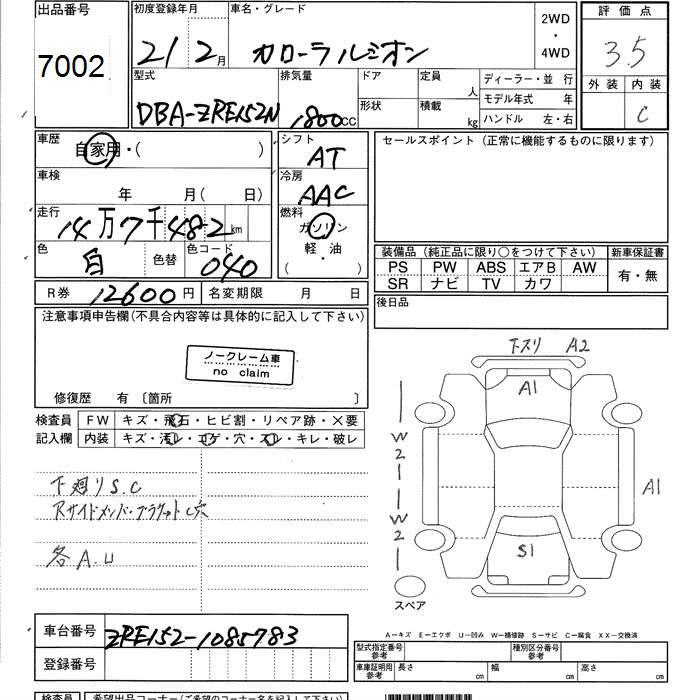 出品番号
7002
初度登録年月
21 2月
車名・グレード
カローラルミオン
2WD
・
4WD
評価点
3.5
外装 内装
C
型式
DBA-ZRE152N
排気量
1800cc
ドア
形状
定員
人
積載
kg
ディーラー・並行
モデル年式 年
ハンドル 左・右
車歴
自家用・( )
シフト
AT
車検
年 月( 日)
冷房
AAC
走行
14万7千482km
燃料
ガソリン
軽・油
( )
色
白
色替
色コード
040
R券 12600円
名変期限 月 日
セールスポイント (正常に機能するものに限ります)
装備品 (純正品に限り○をつけて下さい)
新車保証書
PS PW ABS エアB AW
SR ナビ TV カワ
有・無
後日品
注意事項申告欄(不具合内容等は具体的に記入して下さい)
ノークレーム車
no claim
修復歴 有 〔箇所 〕
検査員
記入欄
FW キズ・飛石・ヒビ割・リペア跡・×要
内装 キズ・汚レ・コゲ・穴・スレ・キレ・破レ
下廻りS.C
Rサイドメンバーブラケット C穴
各A.U
下スリ A2
A1
W2
W2
A1
S1
スペア
A―キズ E―エクボ U―凹み W―補修跡 S―サビ C―腐食 XX―交換済
車台番号 ZRE152-1085783
登録番号
型式指定番号
参考
種別区分番号
参考
車庫証明用
参考
長さ cm
幅 cm
高さ cm
検査員
希望出品コーナー(ご希望のコーナー名を記入して下さい)